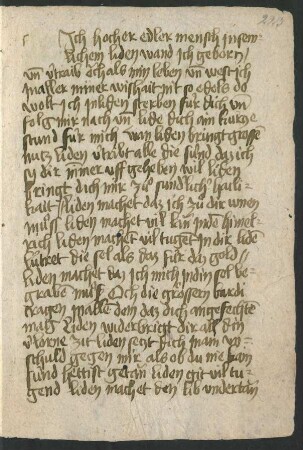 223
Ich hocher edler mensch in sem
lichem liden wand ich geborn
vnd vtraib och als min leben vn west ich
in aller miner wishait nit so edels do
wolt ich in liden sterben für dich vn
folg mir nach vn lide dich ain kurze
stund für mich wan liden bringt grosse
nutz liden vtribt alle die sünd daz ich
sy dir nimer uff geheben wil liden
bringt dich mir zu sundlich haili
kait liden machet daz ich zu dir
muss liden machet vil in dem himel
rich liden machet vil tuget in dir liden
lütret die sel als daz für daz gold
liden machet daz ich mich in din sel be
graben muss Och die grössern burdi
tragen in alle den daz dich angefechten
mag Liden widerbringt dir als din
vlorne zit liden setzt dich in ain vn
schuld gegen mir als ob du nie kain
sünd hettist getan liden git vil tu
gend liden machet den lib vndertan